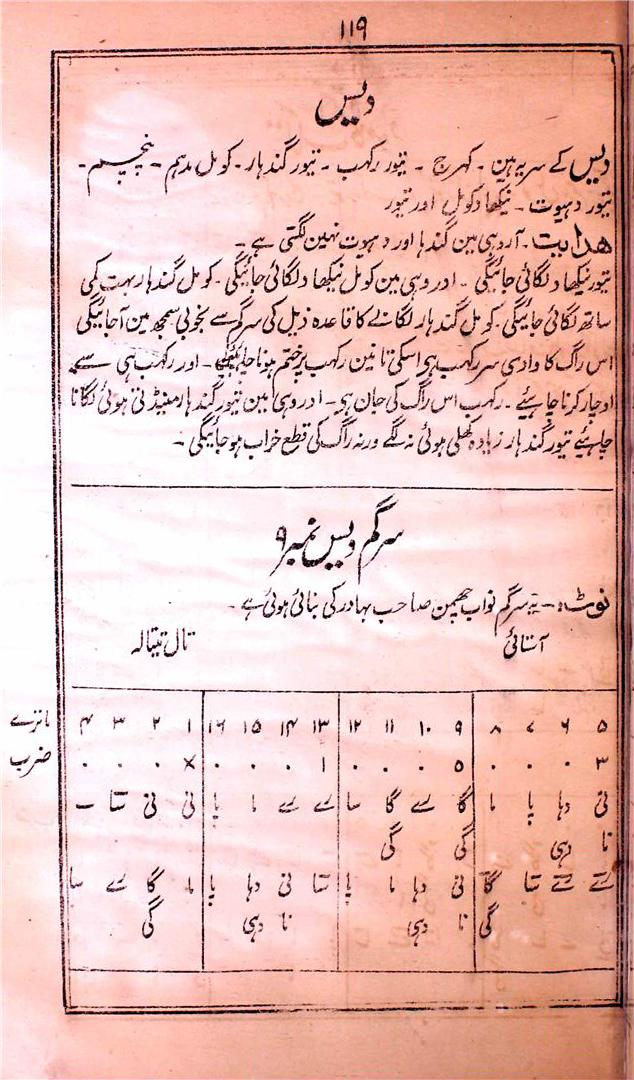 ۱۱۹
دیس
دیس کے سر یہ ہین - کہرج - تیور رکہب - تیور گندہار - کومل مدہم - پنچم -
تیور دہیوت - نیکہاد کومل اور تیور
ہدایت - آروہی مین گندہار اور دہیوت نہین لگتی ہے -
تیور نیکہاد لگائی جائیگی - اور وہی مین کومل نیکہاد لگائی جائیگی - کومل گندہار بہت کمی
ساتھ لگائی جائیگی - کومل گندہار لگانے کا قاعدہ ذیل کی سرگم سے بخوبی سمجھ مین آجائیگی
اس راگ کا وادی سر رکہب ہی اسکی تانین رکہب پر ختم ہونا چاہیئے - اور رکہب ہی سے
اوچار کرنا چاہئیے - رکہب اس راگ کی جان ہی - اوروہی مین تیور گندہار مینڈ تی ہوئی لگانا
چاہئیے تیور گندہار زیادہ کھلی ہوئی نہ لگے ورنہ راگ کی قطع خراب ہوجائیگی -
سرگم دیس نمبر ۹
نوٹ :- یہ سرگم نواب چھمن صاحب بہادر کی بنائی ہوئی ہے -
آستائی تال تیتالہ
۵ ۶ ۷ ۸ ۹ ۱۰ ۱۱ ۱۲ ۱۳ ۱۴ ۱۵ ۱۶ ۱ ۲ ۳ ۴ ماترے
۳ ۰ ۰ ۰ ۵ ۰ ۰ ۰ ۱ ۰ ۰ ۰ × ۰ ۰ ۰ ضرب
نی دہا پا ما گا رے گا سا رے رے ما پا نی نی سا ـ
نا دہی گی گی
رے رے سا گا نی دہا ما پا سا نی دہا پا ما گا رے سا
گی نا دہی نا دہی گی